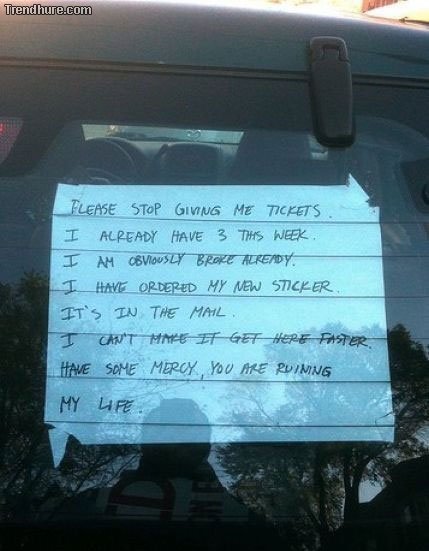 Trendhure.com
PLEASE STOP GIVING ME TICKETS.
I ALREADY HAVE 3 THS WEEK.
I AM OBVIOUSLY BROKE ALREADY.
I HAVE ORDERED MY NEW STICKER.
IT'S IN THE MAIL.
I CAN'T MAKE IT GET HERE FASTER.
HAVE SOME MERCY, YOU ARE RUINING
MY LIFE.